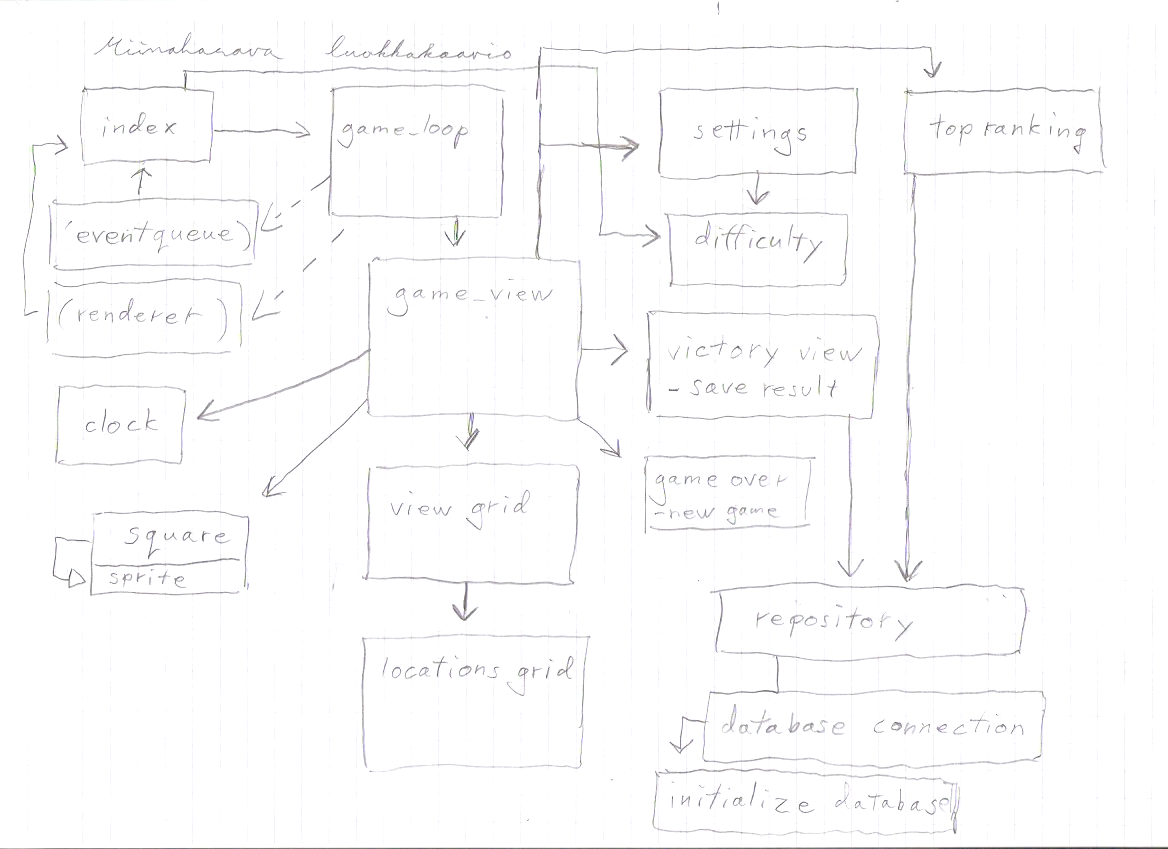 Miinaharava luokkakaavio
index
game_loop
settings
top ranking
(eventqueue)
difficulty
(renderer)
game_view
victory view
- save result
clock
view grid
game over
-new game
square
sprite
repository
locations grid
database connection
initialize database